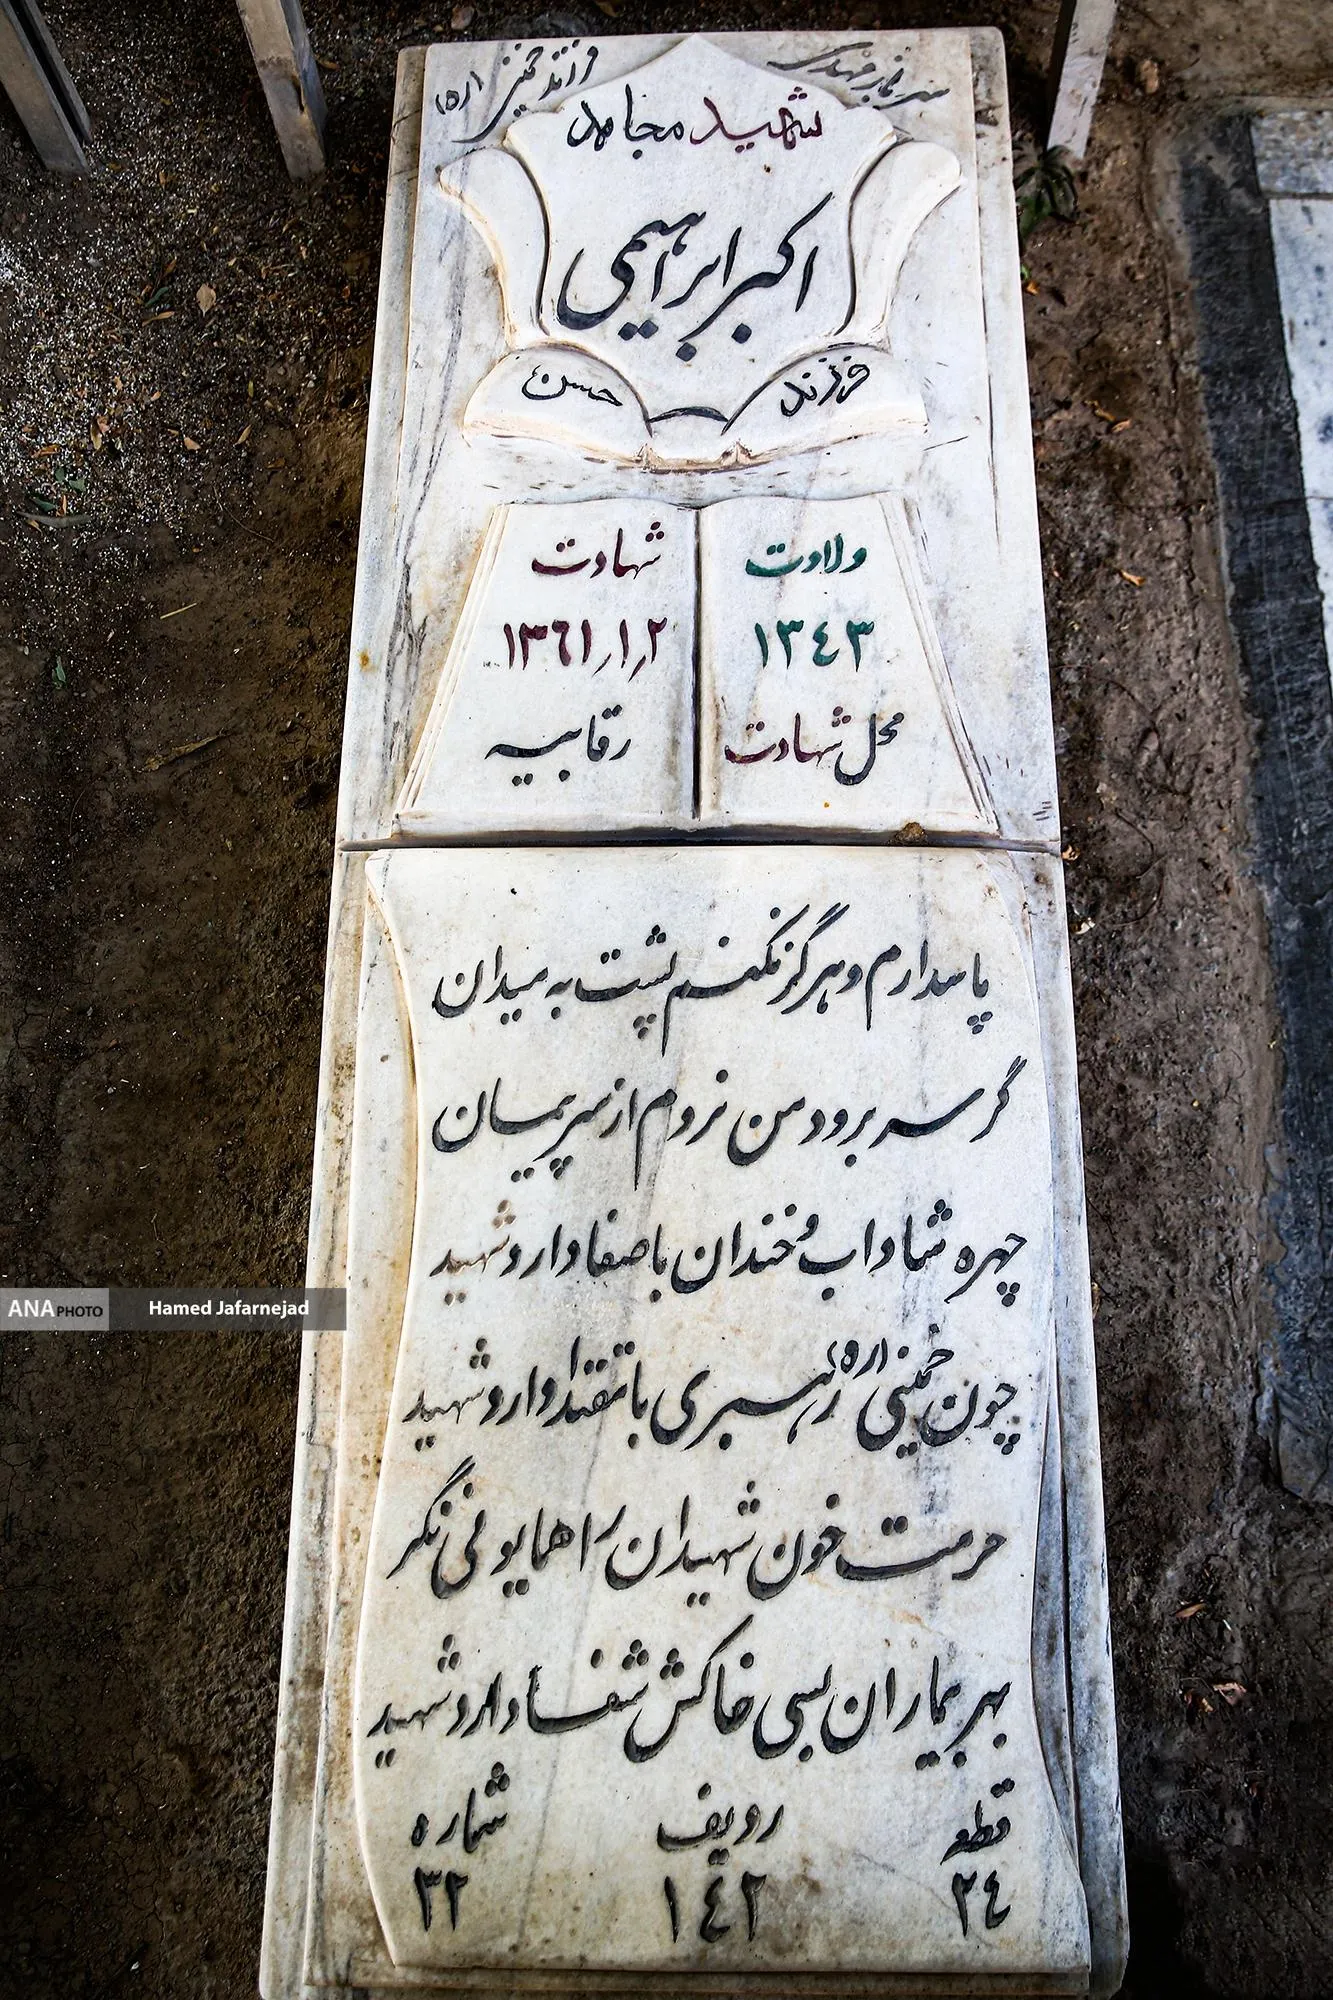 سرباز مهدی
فرزند خمینی (ره)
شهید مجاهد
اکبر ابراهیمی
فرزند حسن
ولادت
۱۳۴۳
محل شهادت
شهادت
۱۳۶۱/۱/۲
رقابیه
پاسدارم و هرگز نکنم پشت به میدان
گر سر برود من نروم از سر پیمان
چهره شاداب و خندان با صفا دارد شهید
چون خمینی (ره) رهبری با مقتدا دارد شهید
حرمت خون شهیدان را همایونی نگر
بهر بیماران بسی خاکش شفا دارد شهید
قطعه ردیف شماره
۲۴ ۱۴۲ ۳۲
ANA PHOTO Hamed Jafarnejad